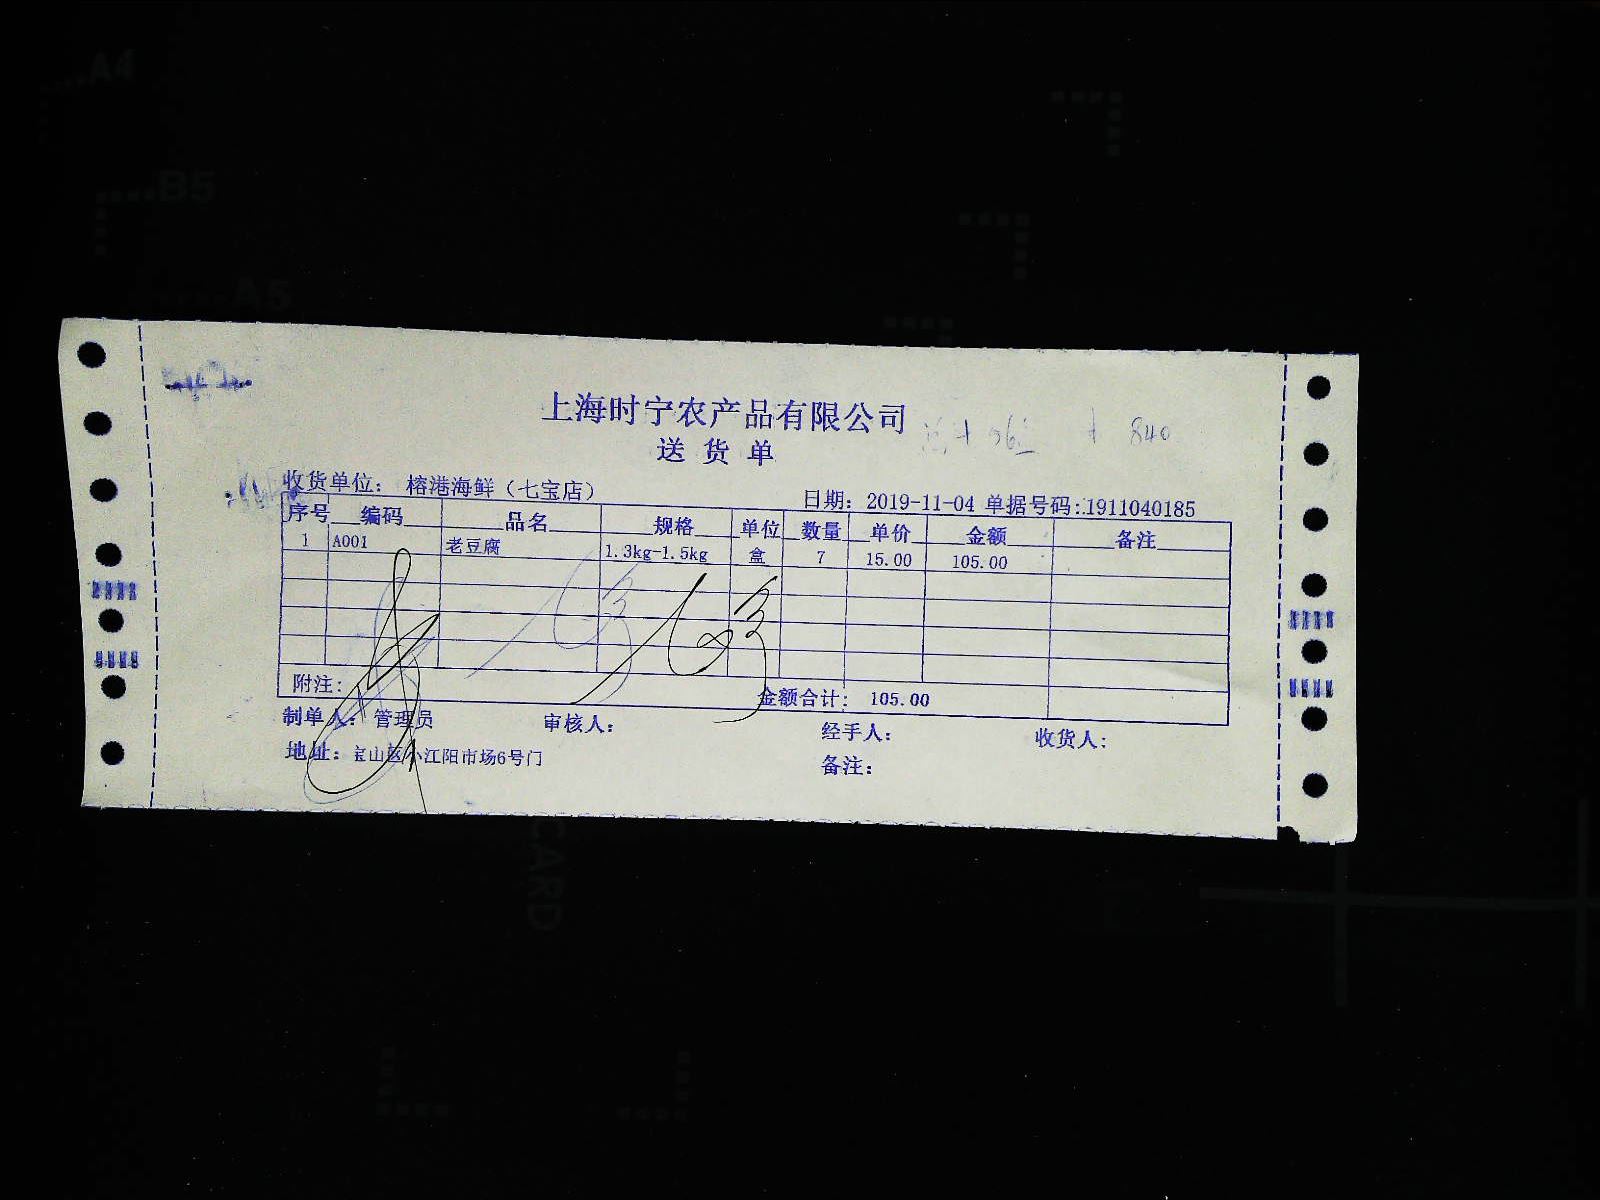 A4
B5
A5
上海时宁农产品有限公司
840
送 货 单
收货单位: 榕港海鲜(七宝店)
日期: 2019-11-04 单据号码:1911040185
序号 编码 品名 规格 单位 数量 单价 金额 备注
1 A001 老豆腐 1.3kg-1.5kg 盒 7 15.00 105.00
附注: 金额合计: 105.00
制单人: 管理员 审核人: 经手人: 收货人:
地址: 宝山区小江阳市场6号门 备注:
CARD